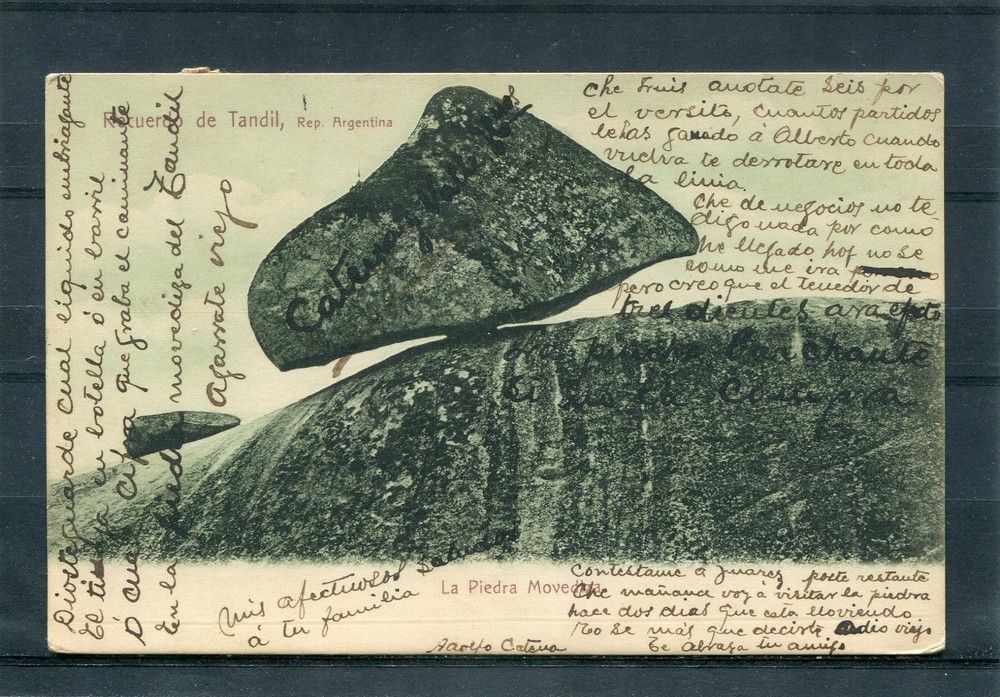 Recuerdo de Tandil, Rep. Argentina
Dios te guarde cual liquido embriagante
El tiempo en botella ó en barril
O cual cifra que graba el caminante
En la piedra movediza del Tandil
Agarrate viejo
Che Fruis anotate seis por
el versito, cuantos partidos
lehas ganado á Alberto cuando
vuelva te derrotare en toda
la linia.
Che de negocios no te
digo nada por como
he llegado hoy no se
como me ira
pero creo que el tenedor de
tres dientes ara efeto
Catena y Valle
en la Chingara
La Piedra Movediza
Mis afectuosos saludos
á tu familia
Contestame a Juarez poste restante
Che mañana voy á visitar la piedra
hace dos dias que esta lloviendo
No se más que decirte adio viejo
Te abraza tu amigo
Adolfo Catena